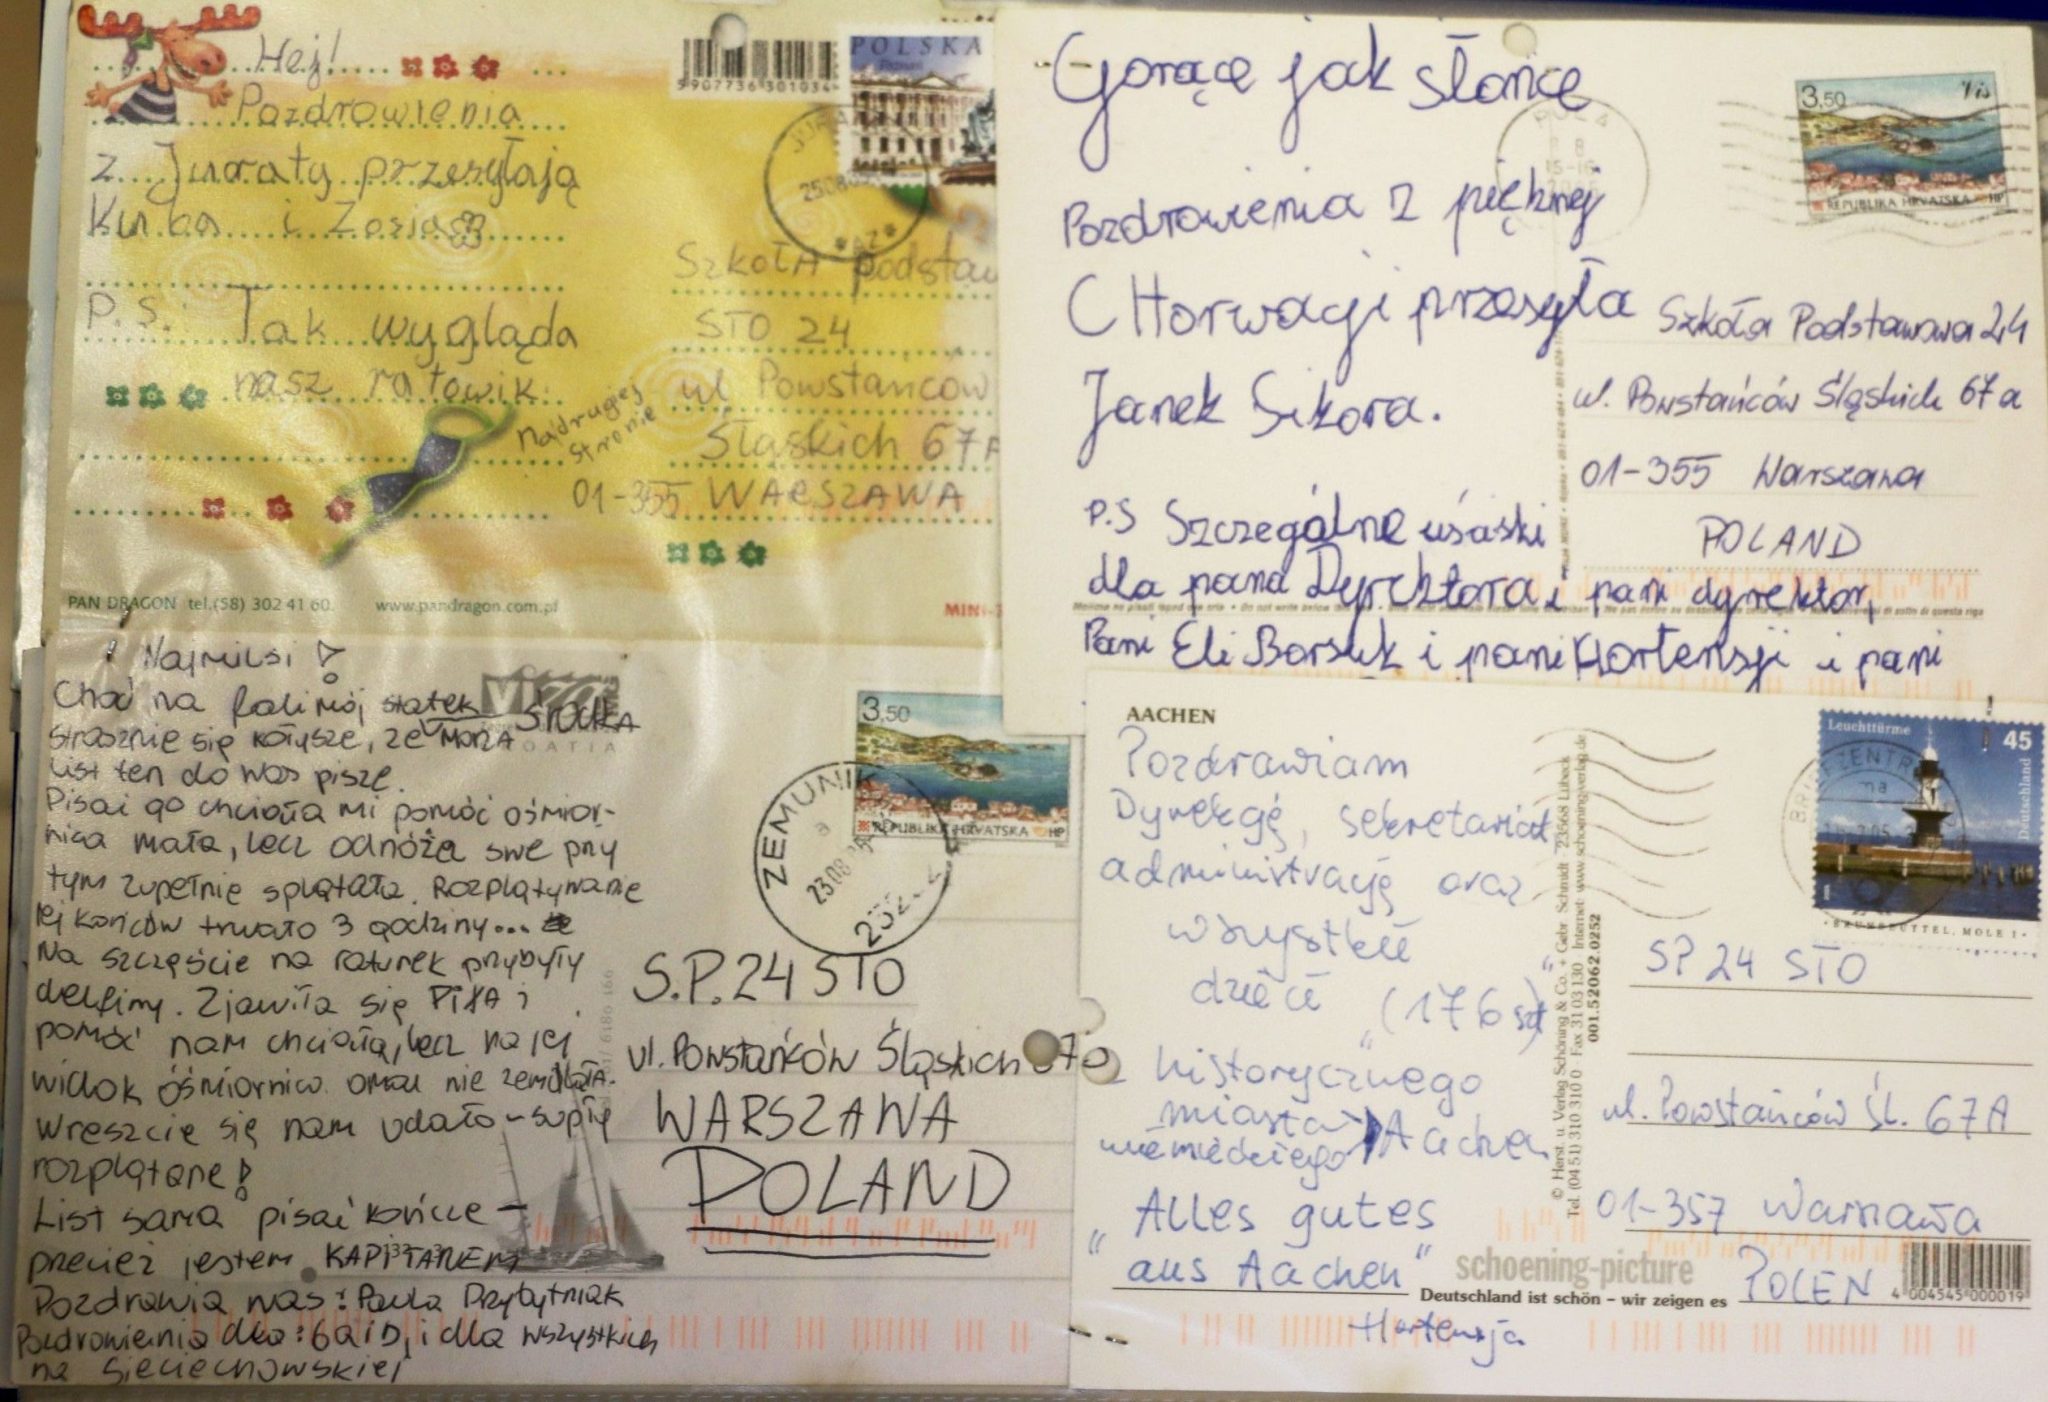 Hej!
Pozdrowienia
z Juraty przesyłają
Kuba i Zosia
P.S. Tak wygląda
nasz ratowik
Na drugiej
stronie
5907736301034
POLSKA
Poznań
Szkoła podstaw
STO 24
ul Powstańców
Śląskich 67A
01-355 WARSZAWA
PAN DRAGON tel.(58) 302 41 60. www.pandragon.com.pl
MINI-
Gorące jak słońce
Pozdrowienia z pięknej
CHorwacji przesyła
Janek Sikora.
P.S Szczególne uściski
dla pana Dyrektora i pani dyrektor,
Pani Eli Borsuk i pani Hortensji i pani
3,50 Vis
REPUBLIKA HRVATSKA HP
PULA
Szkoła Podstawowa 24
ul. Powstańców Śląskich 67a
01-355 Warszawa
POLAND
! Najmilsi !
Choć na fali mój statek
strasznie się kołysze, ze środka morza
list ten do was piszę.
Pisać go chciała mi pomóc ośmior-
nica mała, lecz odnóża swe przy
tym zupełnie splątała. Rozplątywanie
jej końców trwało 3 godziny...
Na szczęście na ratunek przybyły
delfiny. Zjawiła się PIŁA i
pomóc nam chciała, lecz na jej
widok ośmiornica omal nie zemdlała.
Wreszcie się nam udało - supły
rozplątane!
List sama pisać kończę -
przecież jestem KAPITANEM
Pozdrawia was: Paula Przybytniak
Pozdrowienia dla: 6a i D, i dla wszystkich
na Sieciechowskiej
3,50
REPUBLIKA HRVATSKA HP
ZEMUNIK
S.P. 24 STO
ul. Powstańców Śląskich 67a
WARSZAWA
POLAND
AACHEN
Pozdrawiam
Dyrekcję, sekretariat
administrację oraz
wszystkie
dzieci "(176 szt)"
z historycznego
miasta
niemieckiego Aachen
"Alles gutes
aus Aachen"
Hortensja
© Herst. u. Verlag Schöning & Co. + Gebr. Schmidt 23568 Lübeck
Tel. (04 51) 310 310 0 Fax 31 03 130 Internet: www.schoeningverlag.de
001.52062.0252
Leuchttürme 45
Deutschland
BRUNSBÜTTEL, MOLE 1
BRIEFZENTR
SP 24 STO
ul. Powstańców Śl. 67A
01-357 Warszawa
POLEN
schoening-picture
Deutschland ist schön – wir zeigen es
4 004545 000019